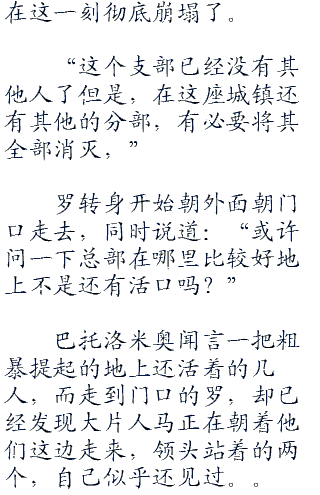 在这一刻彻底崩塌了。
“这个支部已经没有其
他人了但是，在这座城镇还
有其他的分部，有必要将其
全部消灭，”
罗转身开始朝外面朝门
口走去，同时说道：“或许
问一下总部在哪里比较好地
上不是还有活口吗？”
巴托洛米奥闻言一把粗
暴提起的地上还活着的几
人，而走到门口的罗，却已
经发现大片人马正在朝着他
们这边走来，领头站着的两
个，自己似乎还见过。。